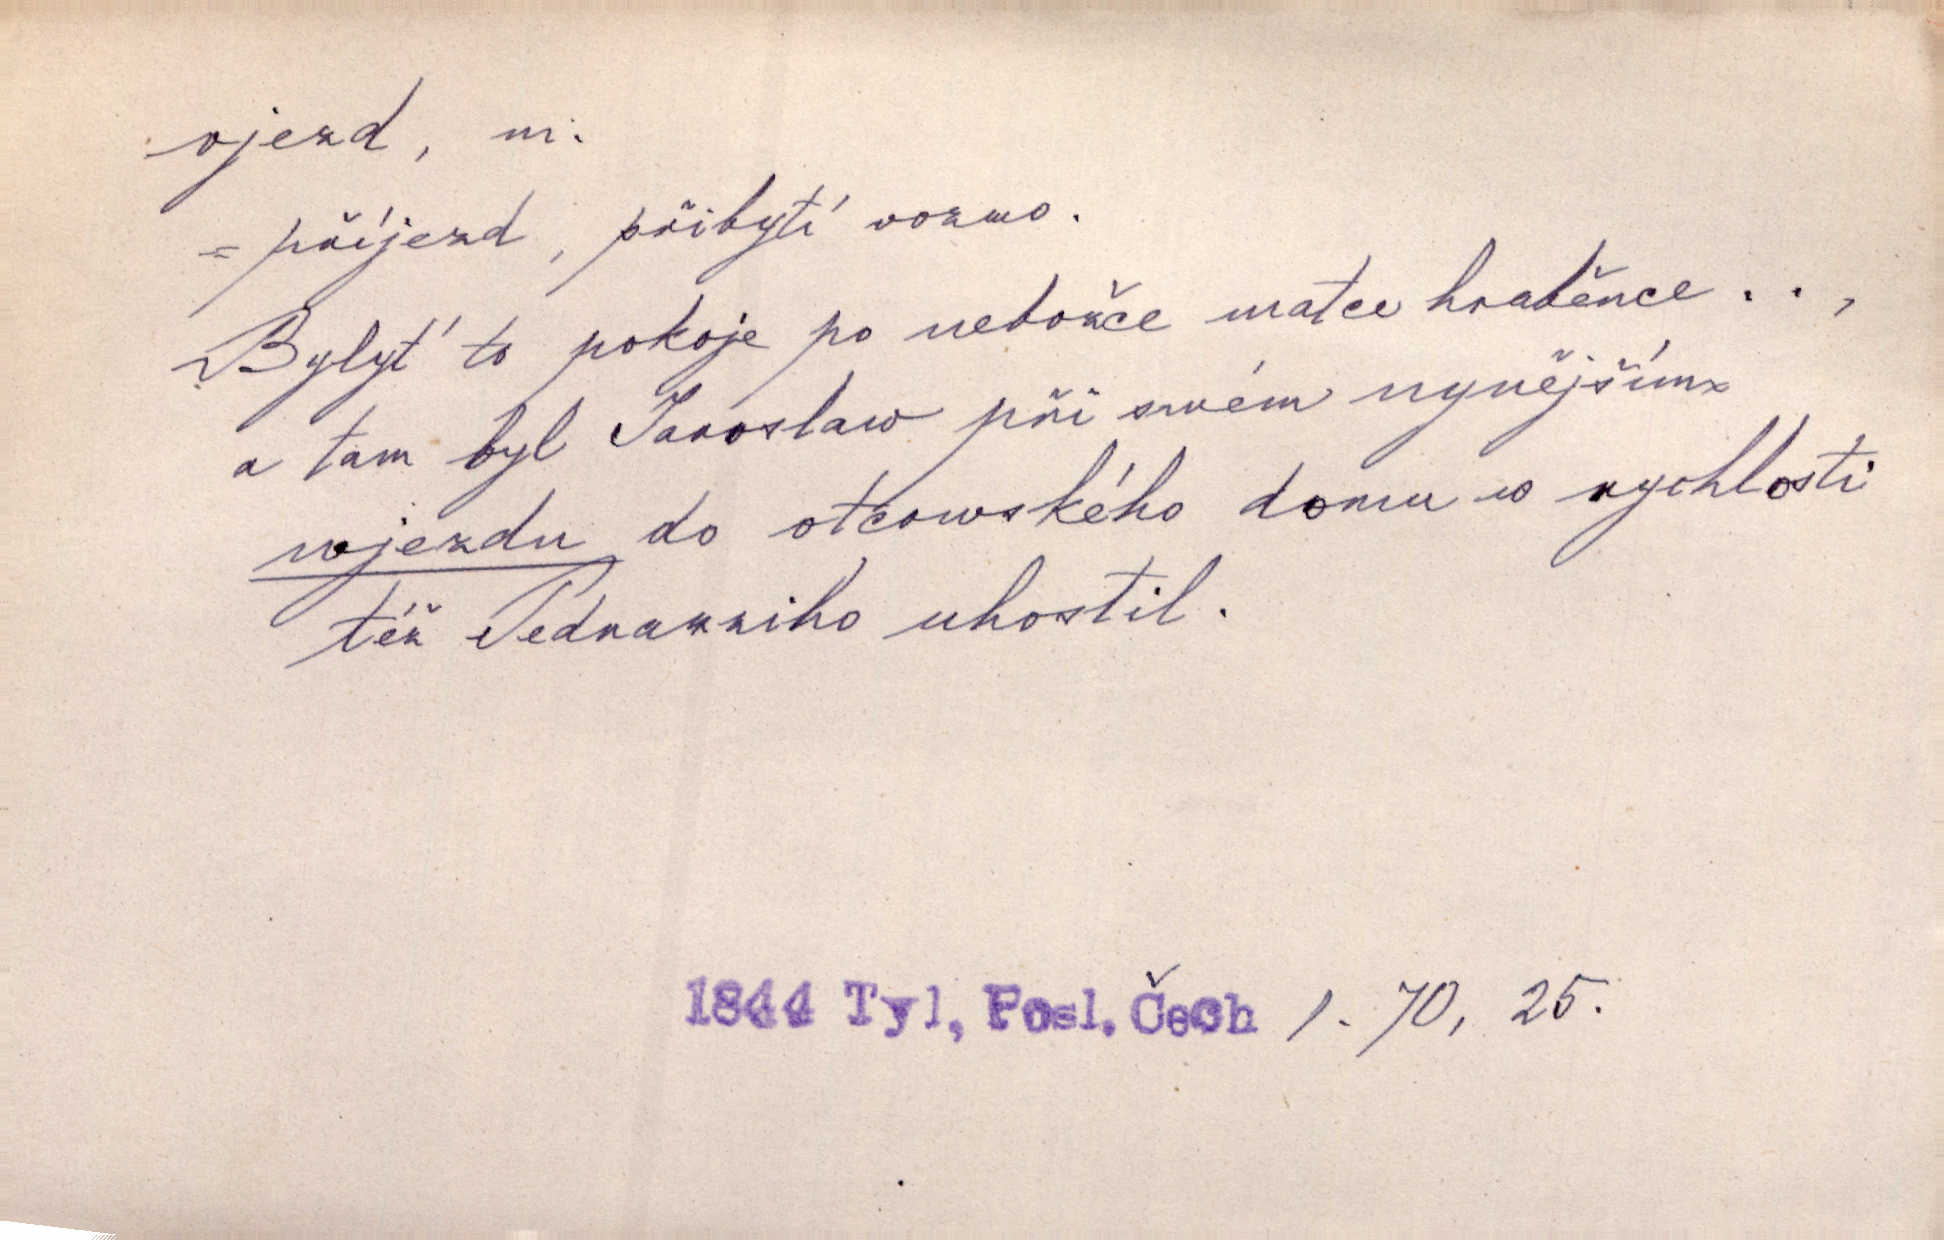 vjezd, m.
= příjezd, přibytí vozmo.
Bylyť to pokoje po nebožce matce hraběnce . . ,
a tam byl Jaroslaw při swém nynějším
wjezdu do otcowského domu w rychlosti
též Pedrazziho uhostil.
1844 Tyl, Posl. Čech 1. 70, 25.